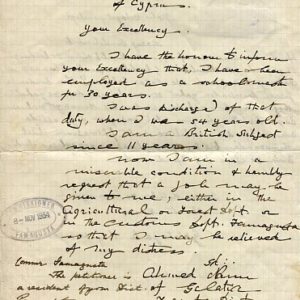 of Cyprus.
Your Excellency.
I have the honour to inform
your Excellency that, I have been
employed as a schoolmaster
for 30 years.
I was discharged of that
duty, when I was 54 years old.
I am a British Subject
since 11 years.
Now I am in a
miserable condition & humbly
request that a job may be
given to me, either in the
Agricultural or Forest Dept. or
in the Customs Dept. Famagusta
so that I may be relieved
of my distress.
COMMISSIONER
8-NOV
FAMAGUSTA
Commr Famagusta
The petitioner is Ahmed
a resident of